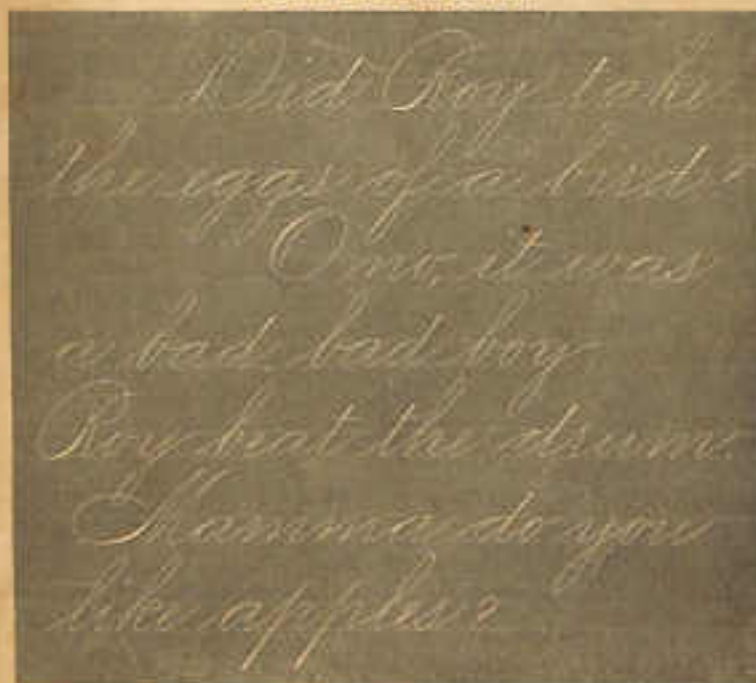 Did Roy take
the eggs of a bird?
O no, it was
a bad bad boy
Roy beat the drum.
Mamma do you
like apples?